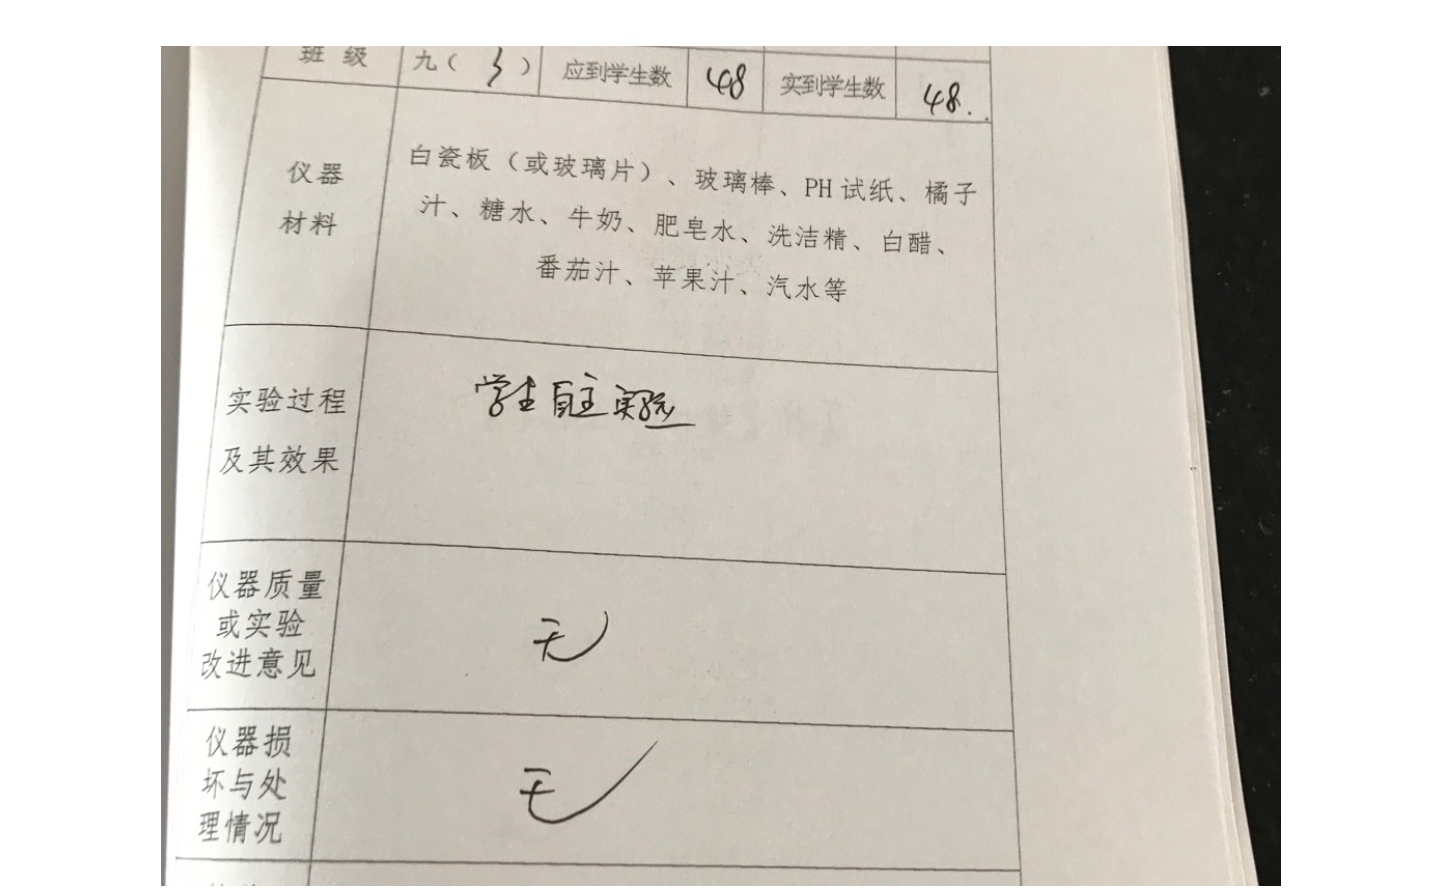 班 级 九（ 3 ） 应到学生数 48 实到学生数 48.
仪器
材料
白瓷板（或玻璃片）、玻璃棒、PH 试纸、橘子
汁、糖水、牛奶、肥皂水、洗洁精、白醋、
番茄汁、苹果汁、汽水等
实验过程
及其效果
学生自主实验
仪器质量
或实验
改进意见
无
仪器损
坏与处
理情况
无